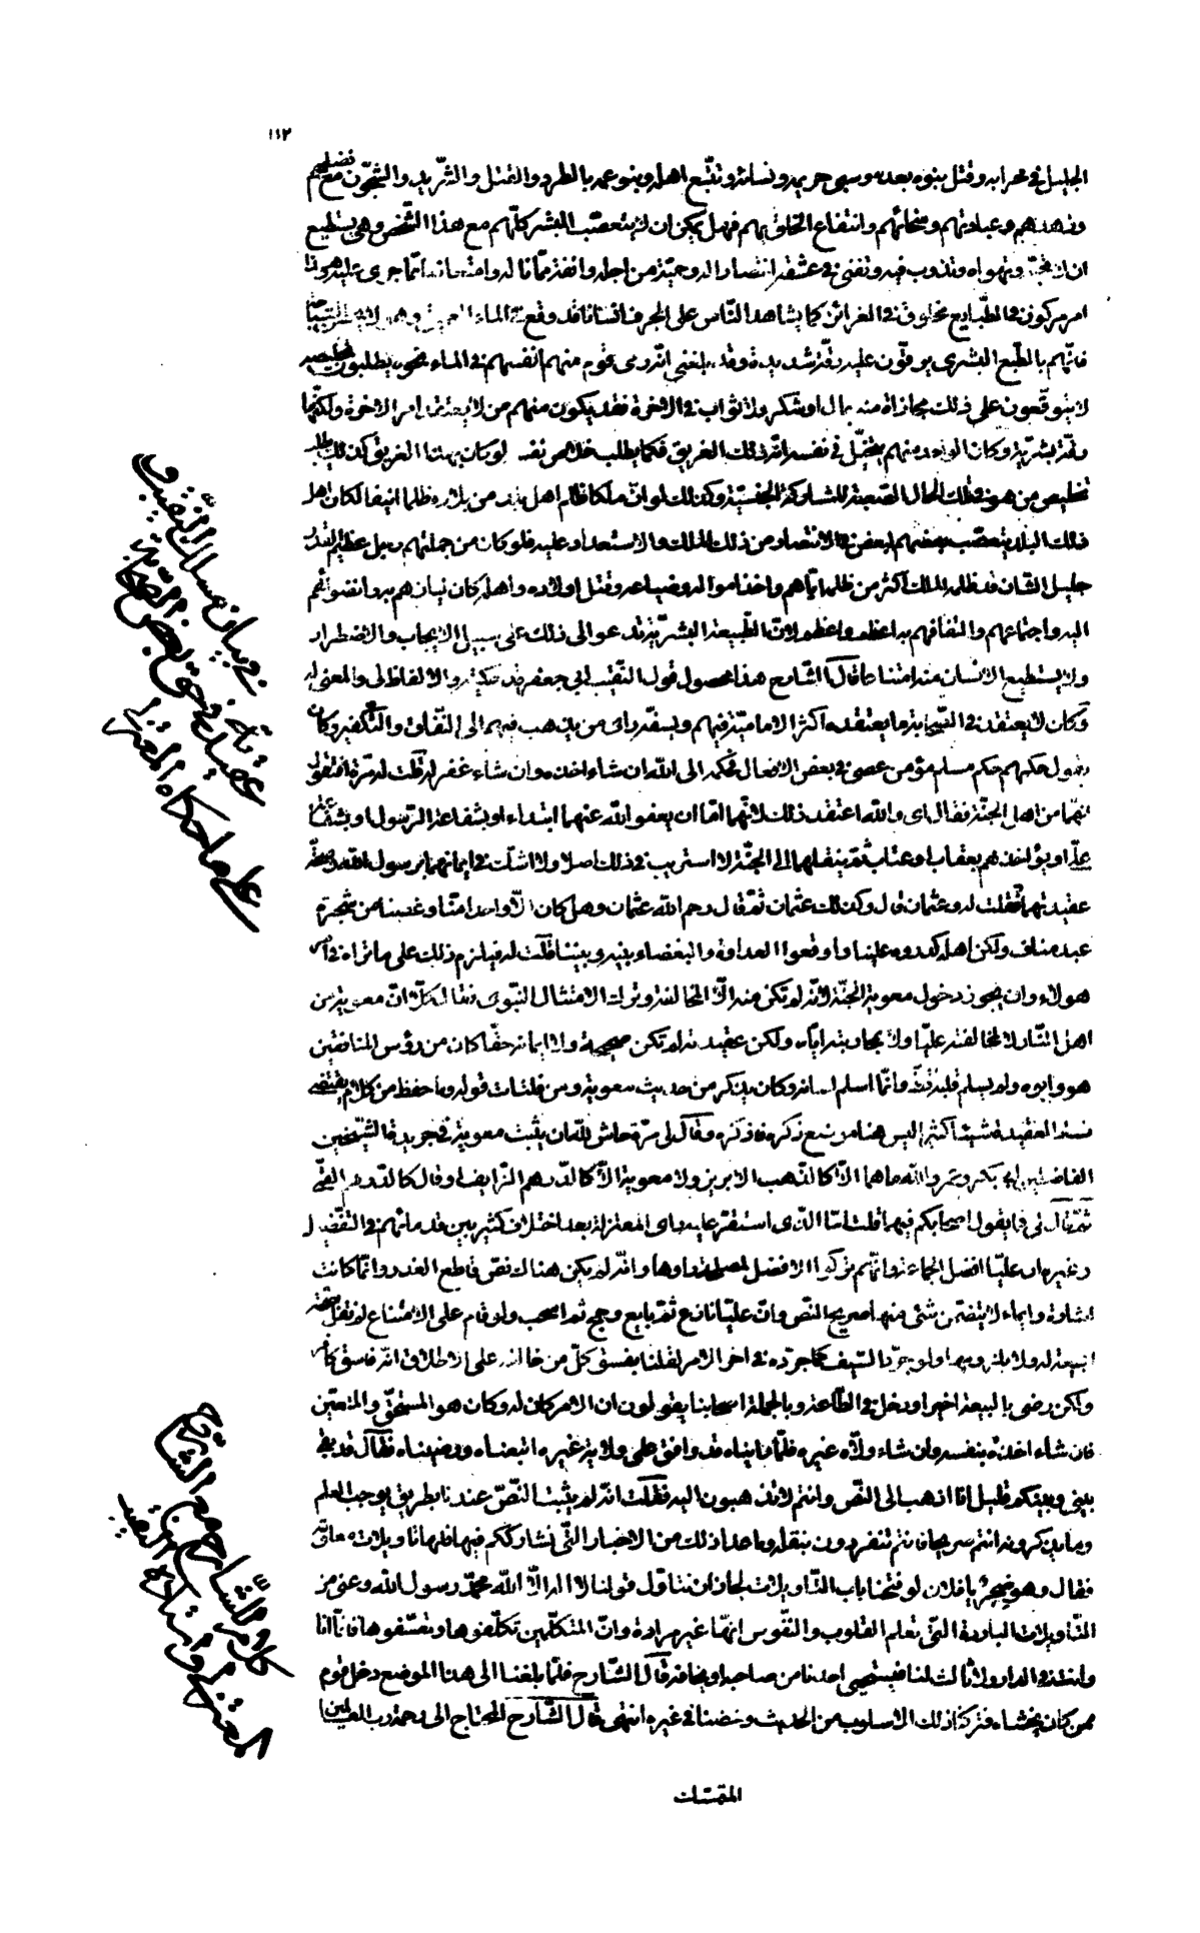 ١١٢
الجليل في محرابه وقتل بنوه بعده وسبي حريمه ونسائه وتتبّع اهله وبنو عمه بالطرد والقتل والتّشريد والسّجون مع فضلهم
وزهدهم وعبادتهم وسخائهم وانتفاع الخلق بهم فهل يمكن ان لا يتعصّب البشر كلّهم مع هذا الشّخص وهل يستطيع
ان لا تحبّه وتهواه وتذوب فيه وتفنى في عشقه انتصارا له وحميّة من اجله وانفة ممّا ناله وامتعاضا ممّا جرى عليه وهذا
امر مركوز في الطّبايع مخلوق في الغرائز كما يشاهد النّاس على الجرف انسانا قد وقع في الماء العميق وهو لا يحسن السّباحة
فانّهم بالطّبع البشرى يرقّون عليه رقّة شديدة وقد يلقى قوم منهم انفسهم في الماء نحوه يطلبون تخليصه
لا يتوقّعون على ذلك مجازاة منه بمال او شكر ولا ثواب في الاخرة فقد يكون منهم من لا يعتقد امر الاخرة ولكنّها
رقّة بشريّة وكان الواحد منهم يتخيّل في نفسه انّه ذلك الغريق فكما يطلب خلاص نفسه لو كان هذا الغريق كذلك يطلب
تخليص من هو في تلك الحال الصّعبة للمشاركة الجنسيّة وكذلك لو انّ ملكا ظلم اهل بلد من بلاده ظلما عنيفا لكان اهل
ذلك البلد يتعصّب بعضهم لبعض في الانتصار من ذلك الملك والاستعداء عليه فلو كان من جملتهم رجل عظيم القدر
جليل الشّان قد ظلمه الملك اكثر من ظلمه ايّاهم واخذ امواله وضياعه وقتل اولاده واهله كان لياذهم به وانضوائهم
اليه واجتماعهم والتفافهم به اعظم واعظم لانّ الطّبيعة البشريّة تدعو الى ذلك على سبيل الايجاب والاضطرار
ولا يستطيع الانسان منه امتناعا قال الشّارح هذا محصول قول النّقيب ابي جعفر قد حكيته والالفاظ لى والمعنى له
وكان لا يعتقد في الصّحابة ما يعتقده اكثر الاماميّة فيهم ويسفّه راى من يذهب فيهم الى النّفاق والتّكفير وكان
يقول حكمهم حكم مسلم مؤمن عصى في بعض الافعال فحكمه الى الله ان شاء اخذه وان شاء غفر له قلت له مرّة افتقول
انّهما من اهل الجنّة فقال اى والله اعتقد ذلك لانّهما امّا ان يعفو الله عنهما ابتداء او بشفاعة الرّسول او بشفاعة
علىّ او يؤاخذهم بعقاب او عتاب ثمّ ينقلهما الى الجنّة لا استريب في ذلك اصلا ولا اشكّ في ايمانهما برسول الله وصحّة
عقيدتهما فقلت له وعثمان قال وكذلك عثمان ثمّ قال رحم الله عثمان وهل كان الّا واحدا منّا وغصنا من شجرة
عبد مناف ولكن اهله كدروه علينا واوقعوا العداوة والبغضاء بينه وبيننا قلت له فيلزم ذلك على ما تراه في امر
هولاء وان يجوز دخول معوية الجنّة لانّه لم تكن منه الّا المخالفة وترك الامتثال النّبوى فقال كلّا انّ معوية من
اهل النّار لا لمخالفته عليّا ولا بمحاربته ايّاه ولكن عقيدته لم تكن صحيحة ولا ايمانه حقّا كان من رؤس المنافقين
هو وابوه ولم يسلم قلبه قطّ وانّما اسلم لسانه وكان يذكر من حديث معوية ومن فلتات قوله وما حفظ من كلام يقتضى
فساد العقيدة شيئا كثيرا ليس هنا موضع ذكره فاذكره وقال لى مرّة حاش لله ان يثبت معوية في جريدة الشّيخين
الفاضلين ابى بكر وعمر والله ما هما الّا كالذّهب الابريز ولا معوية الّا كالدّرهم الزّايف او قال كالدّرهم القسّى
ثمّ قال لى فما يقول اصحابكم فيهما قلت امّا الّذى استقرّ عليه راى المعتزلة بعد اختلاف كثير بين قدمائهم في التّفضيل
وغيره ان عليّا افضل الجماعة وانّهم تركوا الافضل لمصلحة راوها وانّه لم يكن هناك نصّ قاطع العذر وانّما كانت
اشارة وايماء لا يتضمّن شئ منها صريح النّصّ وانّ عليّا نازع ثمّ بايع وجمح ثمّ اصحب ولو قام على الامتناع لم نقل بصحّة
البيعة له ولا بلزومها ولو جرّد السّيف كما جرّده في اخر الامر لقلنا بفسق كلّ من خالفه على الاطلاق انّه فاسق كافر
ولكن رضى بالبيعة اخيرا ودخل في الطّاعة وبالجملة اصحابنا يقولون ان الامر كان له وكان هو المستحقّ والمتعيّن
فان شاء اخذه بنفسه وان شاء ولّاه غيره فلمّا رايناه قد وافق على ولاية غيره اتبعناه ورضيناه فقال قد بقى
بينى وبينكم قليل انا اذهب الى النّصّ وانتم لا تذهبون اليه فقلت انّه لم يثبت النّصّ عندنا بطريق يوجب العلم
وما تذكرونه انتم صريحا فانتم تنفردون بنقله وما عدا ذلك من الاخبار التّى نشارككم فيها فلها تاويلات معلومة
فقال وهو ضجر يا فلان لو فتحنا باب التّاويلات لجاز ان نتناول قولنا لا اله الّا الله محمّد رسول الله دعنى من
التّاويلات الباردة التّى تعلم القلوب والنّفوس انّها غير مرادة وانّ المتكلّمين تكلّفوها وتعسّفوها فانّما انا
وانت في الدار ولا ثالث لنا فيستحيى احدنا من صاحبه او يخافه قال الشّارح فلمّا بلغنا الى هذا الموضع دخل قوم
ممن كان يخشاه فتركنا ذلك الاسلوب من الحديث وخضنا في غيره انتهى قال الشّارح المحتاج الى رحمة ربّ العالمين
في بيان مسالك النّقيب و
عقيدته في حق بعض الصّحابة
على ما حكاه المعتزلى
كلام للشّارح مع الشّارح
المعتزلى واستاده النقيب